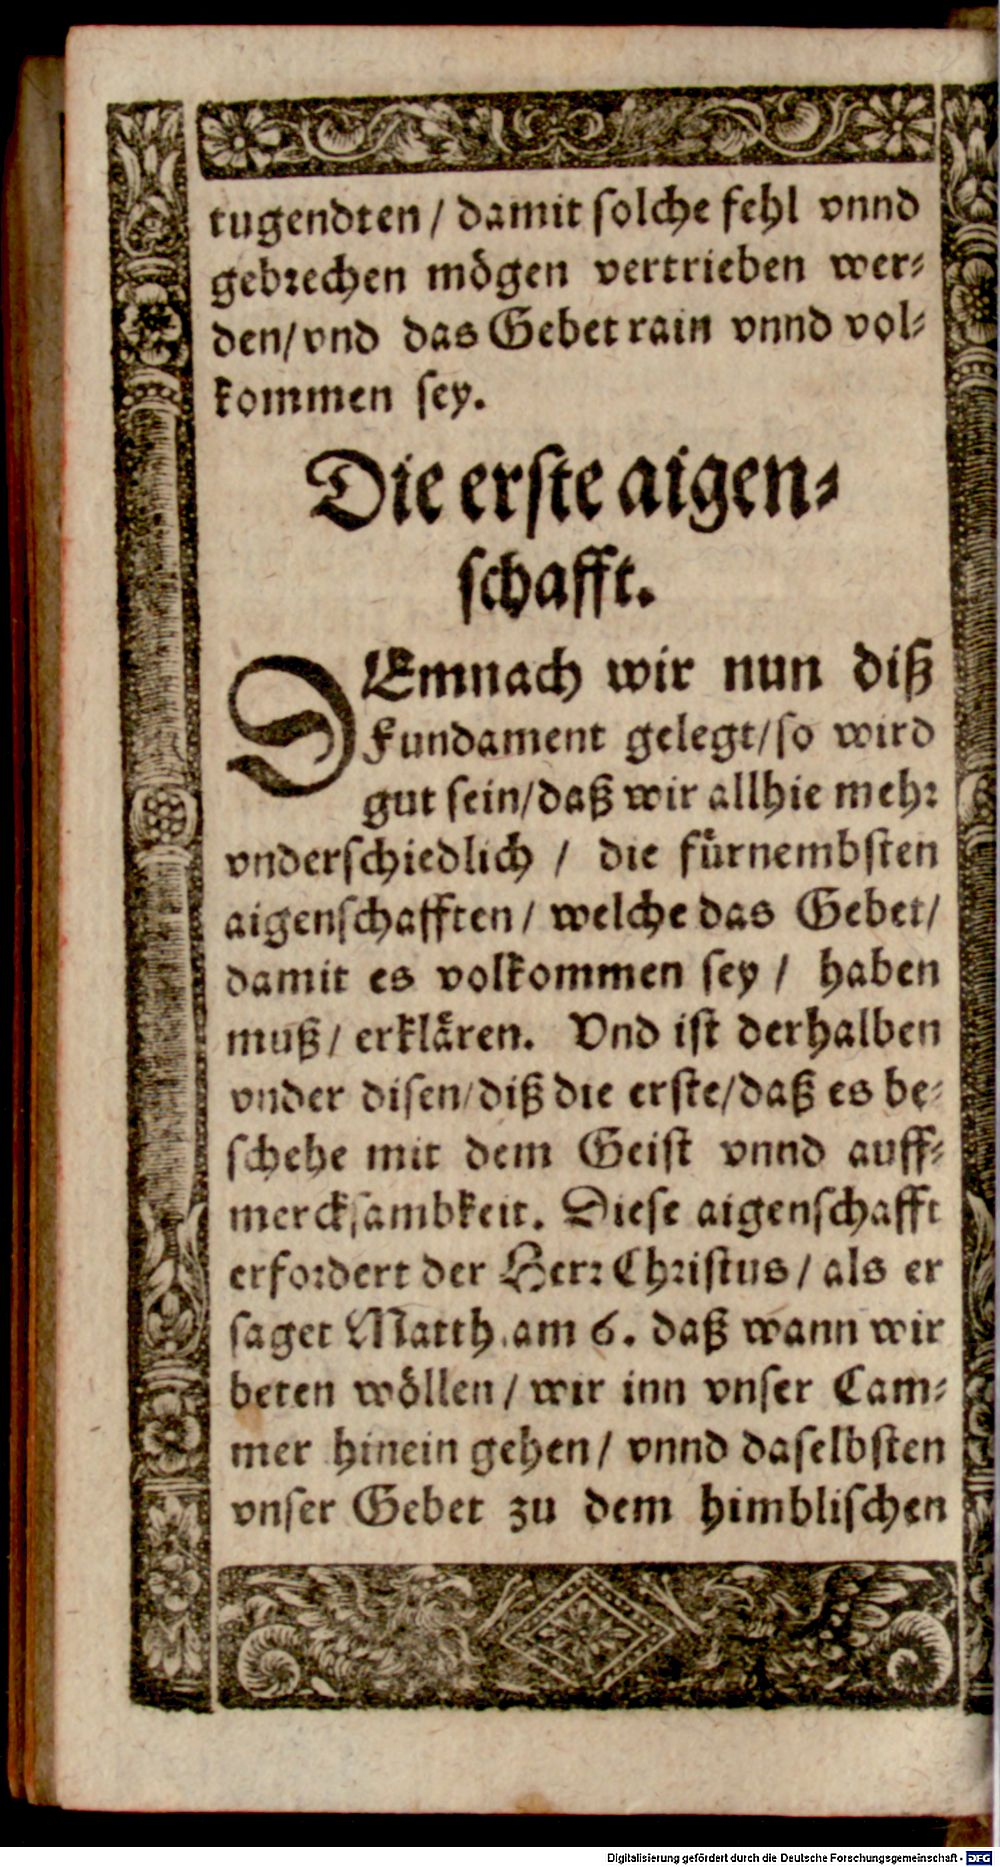 tugendten / damit solche fehl vnnd
gebrechen mögen vertrieben wer-
den / vnd das Gebet rain vnnd vol-
kommen sey.
Die erste aigen-
schafft.
DEmnach wir nun diß
Fundament gelegt / so wird
gut sein / daß wir allhie mehr
vnderschiedlich / die fürnembsten
aigenschafften / welche das Gebet /
damit es volkommen sey / haben
muß / erklären. Vnd ist derhalben
vnder disen / diß die erste / daß es be-
schehe mit dem Geist vnnd auff-
mercksambkeit. Diese aigenschafft
erfordert der Herr Christus / als er
saget Matth. am 6. daß wann wir
beten wöllen / wir inn vnser Cam-
mer hinein gehen / vnnd daselbsten
vnser Gebet zu dem himblischen
Digitalisierung gefördert durch die Deutsche Forschungsgemeinschaft - DFG